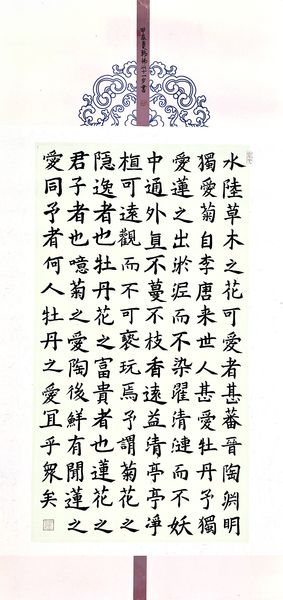 水陸草木之花可愛者甚蕃晉陶淵明
獨愛菊自李唐来世人甚愛牡丹予獨
愛蓮之出淤泥而不染濯清漣而不妖
中通外直不蔓不枝香遠益清亭亭凈
植可遠觀而不可褻玩焉予謂菊花之
隱逸者也牡丹花之富貴者也蓮花之
君子者也噫菊之愛陶後鮮有聞蓮之
愛同予者何人牡丹之愛宜乎眾矣